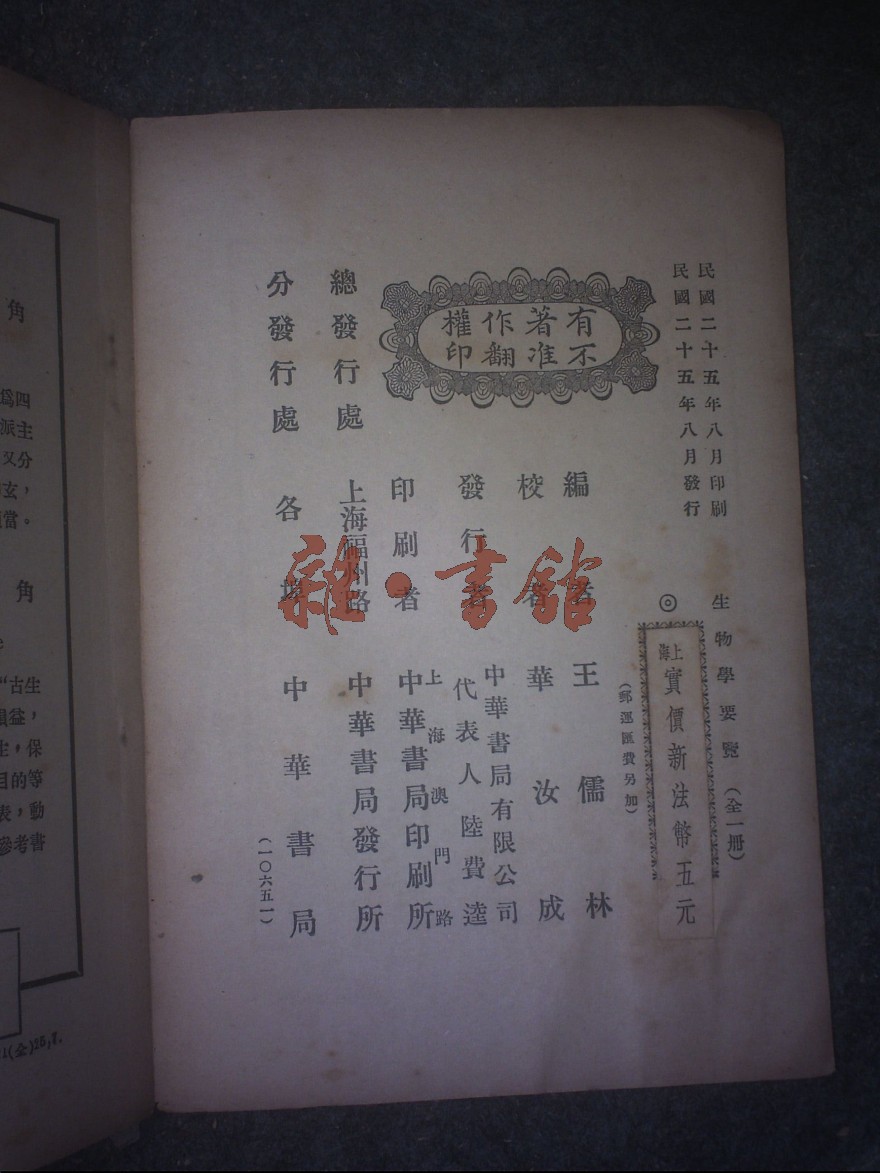 民國二十五年八月印刷
民國二十五年八月發行
生物學要覽（全一册）
◎
上海實價新法幣五元
（郵運匯費另加）
有著作權
不准翻印
編者 王儒林
校者 華汝成
發行者 中華書局有限公司
代表人陸費逵
印刷者 上海澳門路
中華書局印刷所
總發行處 上海福州路 中華書局發行所
分發行處 各埠 中華書局
（一〇六五一）
雜·書館
角
四
爲
主
派
又分
玄，
當。
角
“古生
益，
生，保
目的等
表，動
參考書